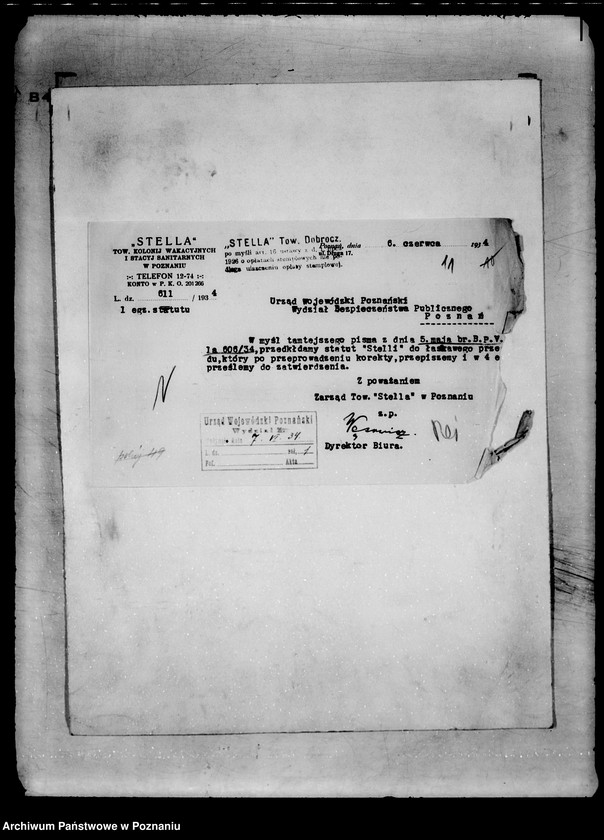 „STELLA”
TOW. KOLONIJ WAKACYJNYCH
I STACYJ SANITARNYCH
W POZNANIU
:-: TELEFON 12-74 :-:
KONTO W P. K. O. 201266
L. dz. 611 / 193 4
1 egz. statutu
„STELLA” Tow. Dobrocz.
po myśli art. 16 ustawy z d.
1926 o opłatach stemplowych
uiszczeniu opłaty stemplowej.
Poznań, dnia 6. czerwca 1934
Długa 17.
Urząd Wojewódzki Poznański
Wydział Bezpieczeństwa Publicznego
Poznań
W myśl tamtejszego pisma z dnia 5.maja br.B.p.V.
1a 606/34,przedkłdamy statut "Stelli" do łaskawego prze
du,który po przeprowadzeniu korekty,przepiszemy i w 4 e
prześlemy do zatwierdzenia.
Z poważaniem
Zarząd Tow."Stella" w Poznaniu
z.p.
Dyrektor Biura.
Urząd Wojewódzki Poznański
Wydział
dnia 7. VI. 34
L. dz. zał. 1
Pol. Akta
N
Archiwum Państwowe w Poznaniu